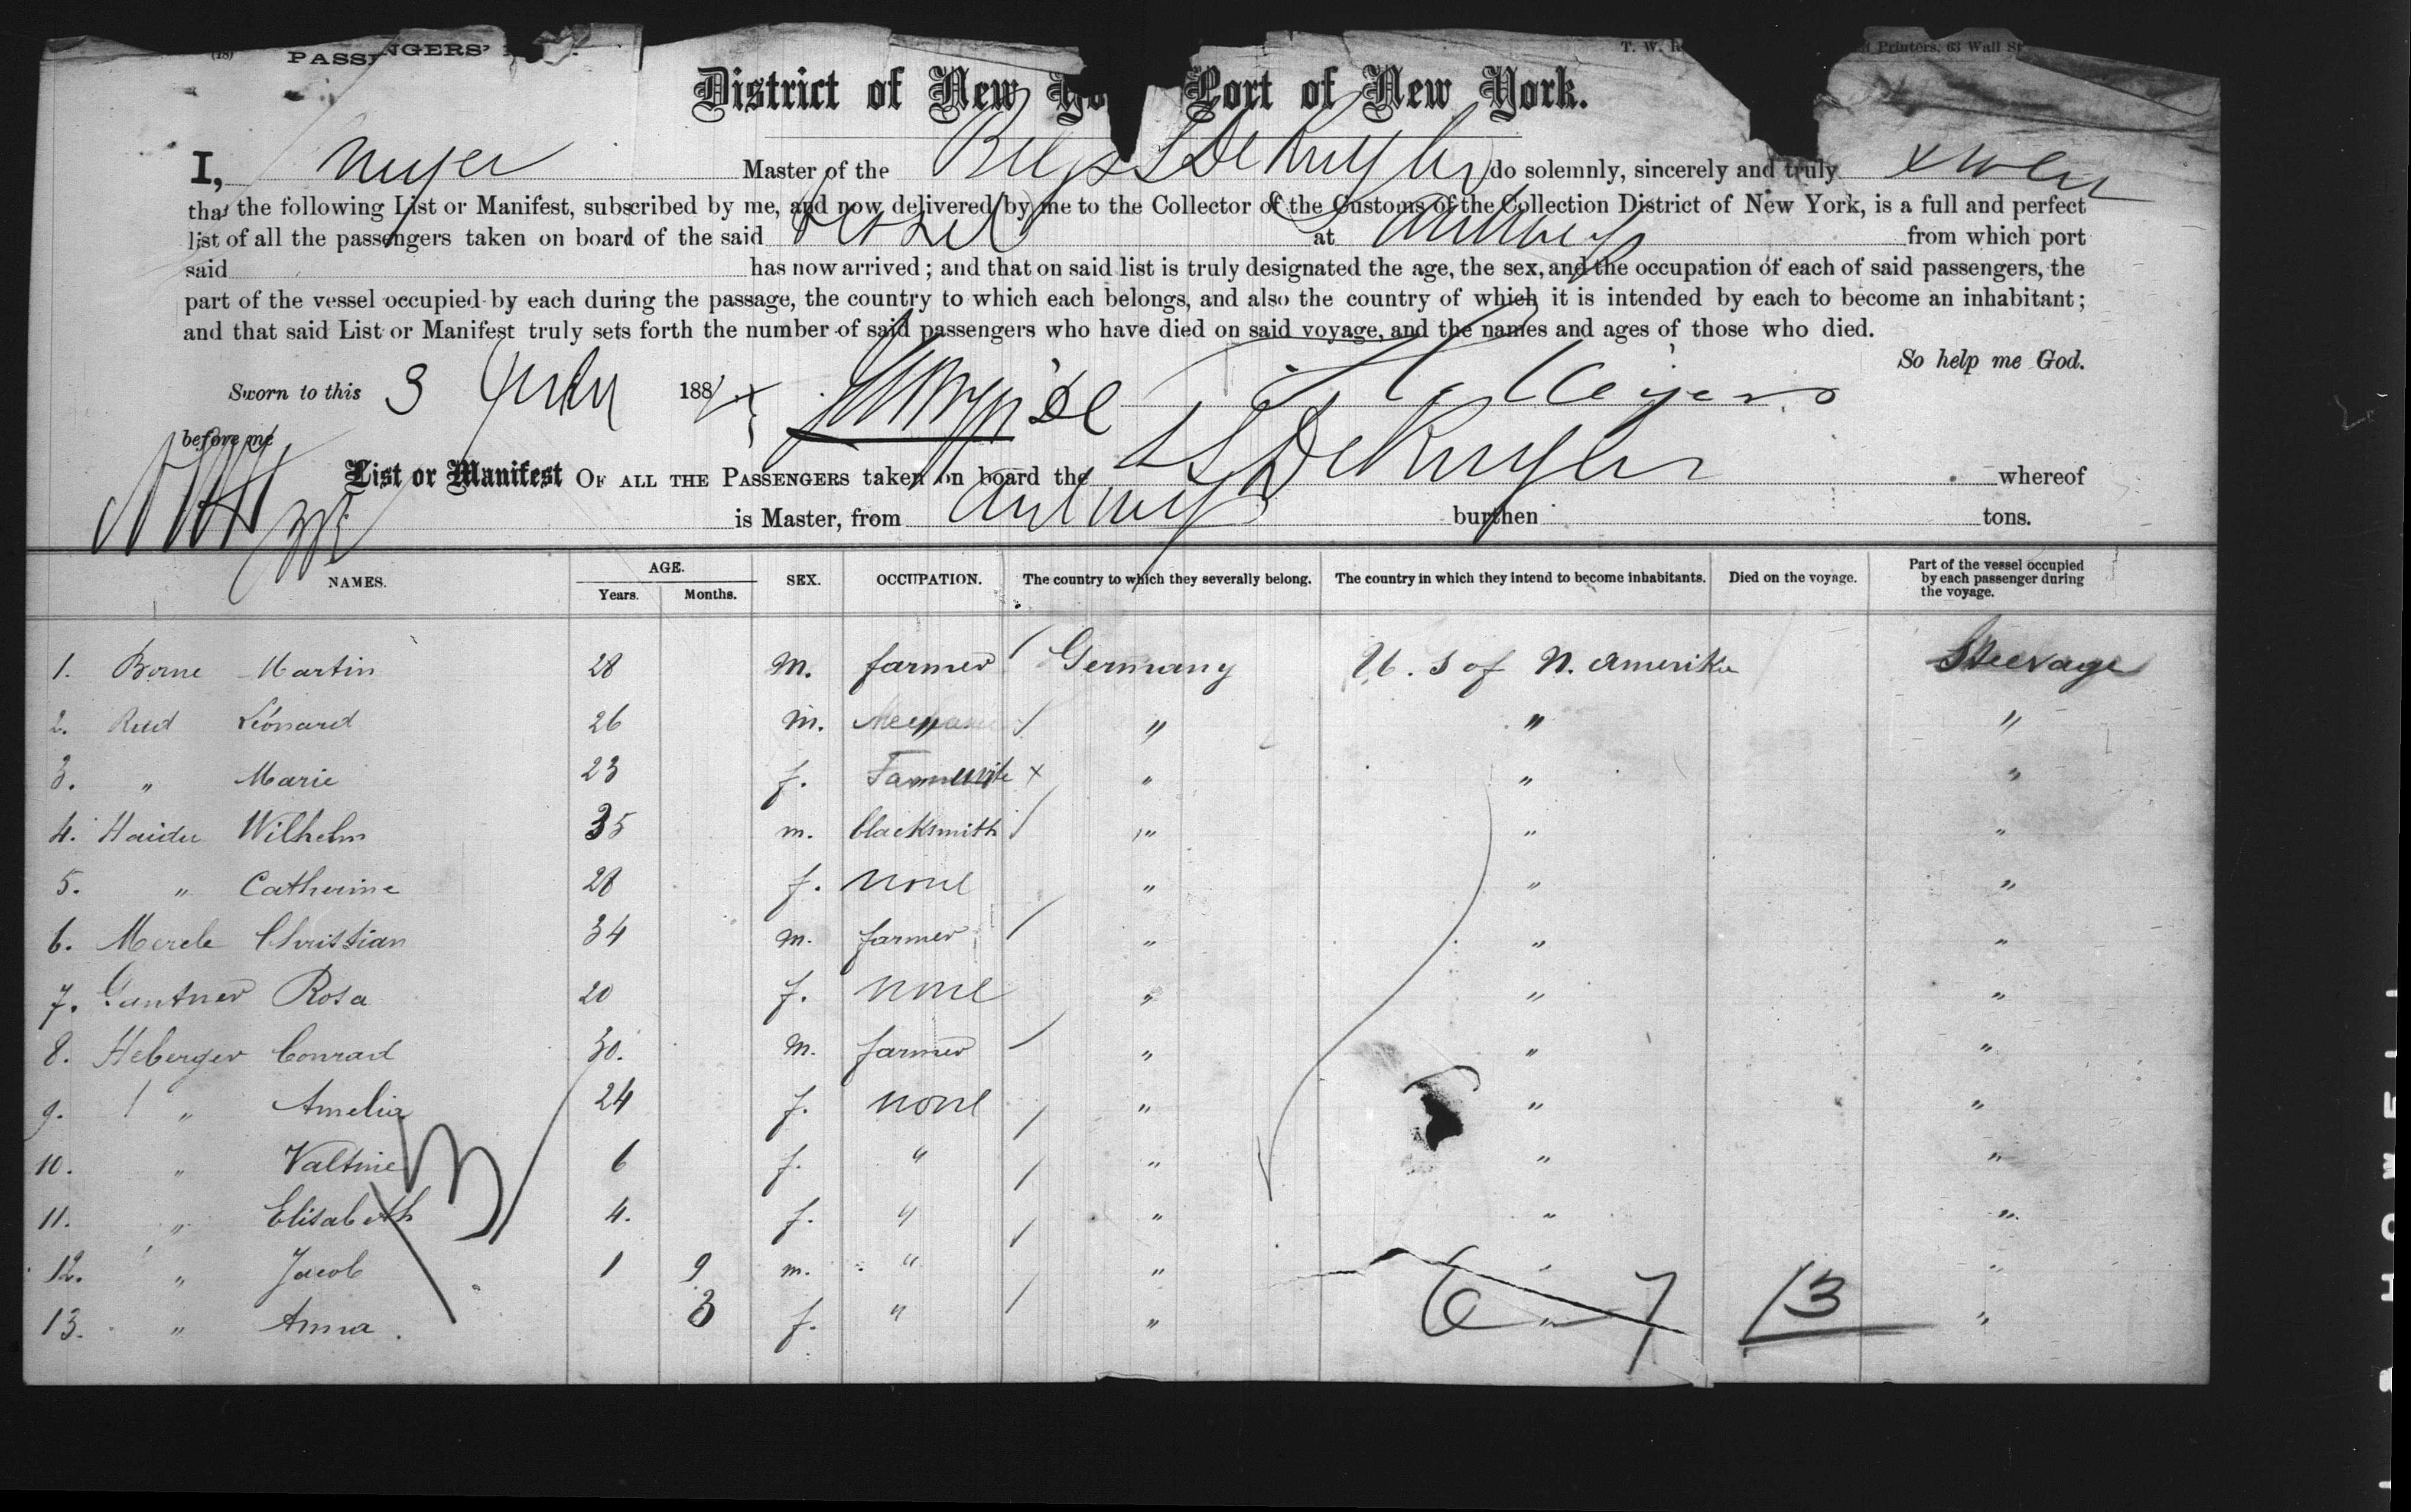 PASSENGERS'
T. W. Printers, 63 Wall St
District of New Yo Port of New York.
I, Meyer Master of the Belg SS De Ruyter do solemnly, sincerely and truly swear
that the following List or Manifest, subscribed by me, and now delivered by me to the Collector of the Customs of the Collection District of New York, is a full and perfect
list of all the passengers taken on board of the said vessel at Antwerp from which port
said has now arrived; and that on said list is truly designated the age, the sex, and the occupation of each of said passengers, the
part of the vessel occupied by each during the passage, the country to which each belongs, and also the country of which it is intended by each to become an inhabitant;
and that said List or Manifest truly sets forth the number of said passengers who have died on said voyage, and the names and ages of those who died.
So help me God.
Sworn to this 3 188 Meyer
before me
List or Manifest OF ALL THE PASSENGERS taken on board the SS De Ruyter whereof
is Master, from Antwerp burthen tons.
NAMES. AGE. Years. Months. SEX. OCCUPATION. The country to which they severally belong. The country in which they intend to become inhabitants. Died on the voyage. Part of the vessel occupied by each passenger during the voyage.
1. Borne Martin 28 m. farmer Germany U. S of N. Amerika Steerage
2. Rud Léonard 26 m. " " " "
3. " Marie 23 f. " " "
4. Haider Wilhelm 35 m. blacksmith " " "
5. " Catherine 28 f. none " " "
6. Mercle Christian 34 m. farmer " " "
7. Gantner Rosa 20 f. none " " "
8. Heberger Conrad 30. m. farmer " " "
9. " Amelia 24 f. none " " "
10. " Valtine 6 f. " " " "
11. " Elisabeth 4. f. " " " "
12. " Jacob 1 9 m. " " " "
13. " Anna. 3 f. " " " "
6 7 13